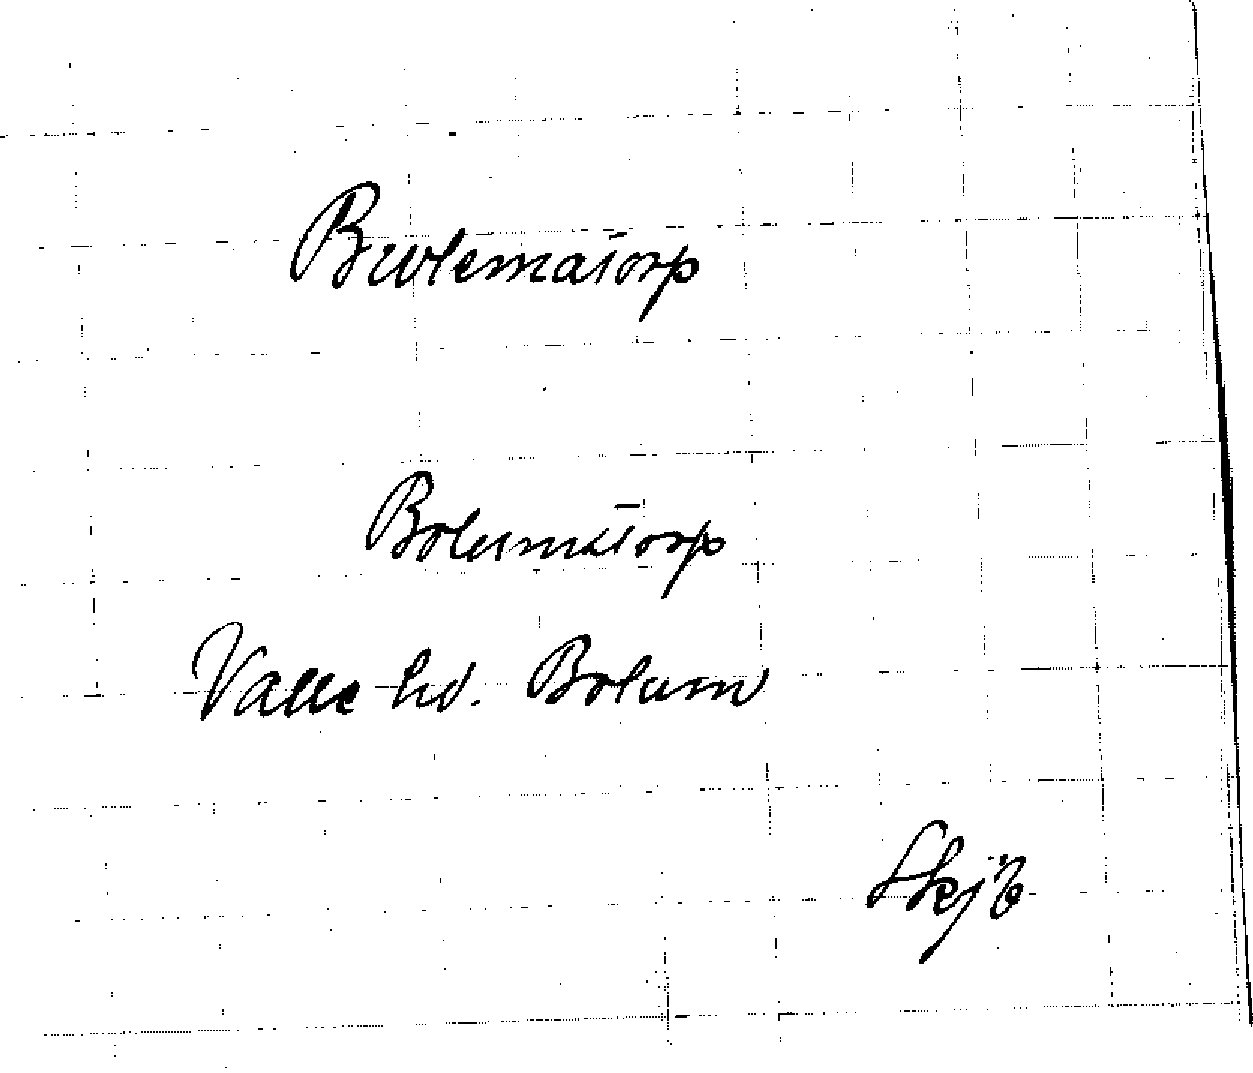 Bwlematorp
Bolumatorp
Valle hd. Bolum
Skjb